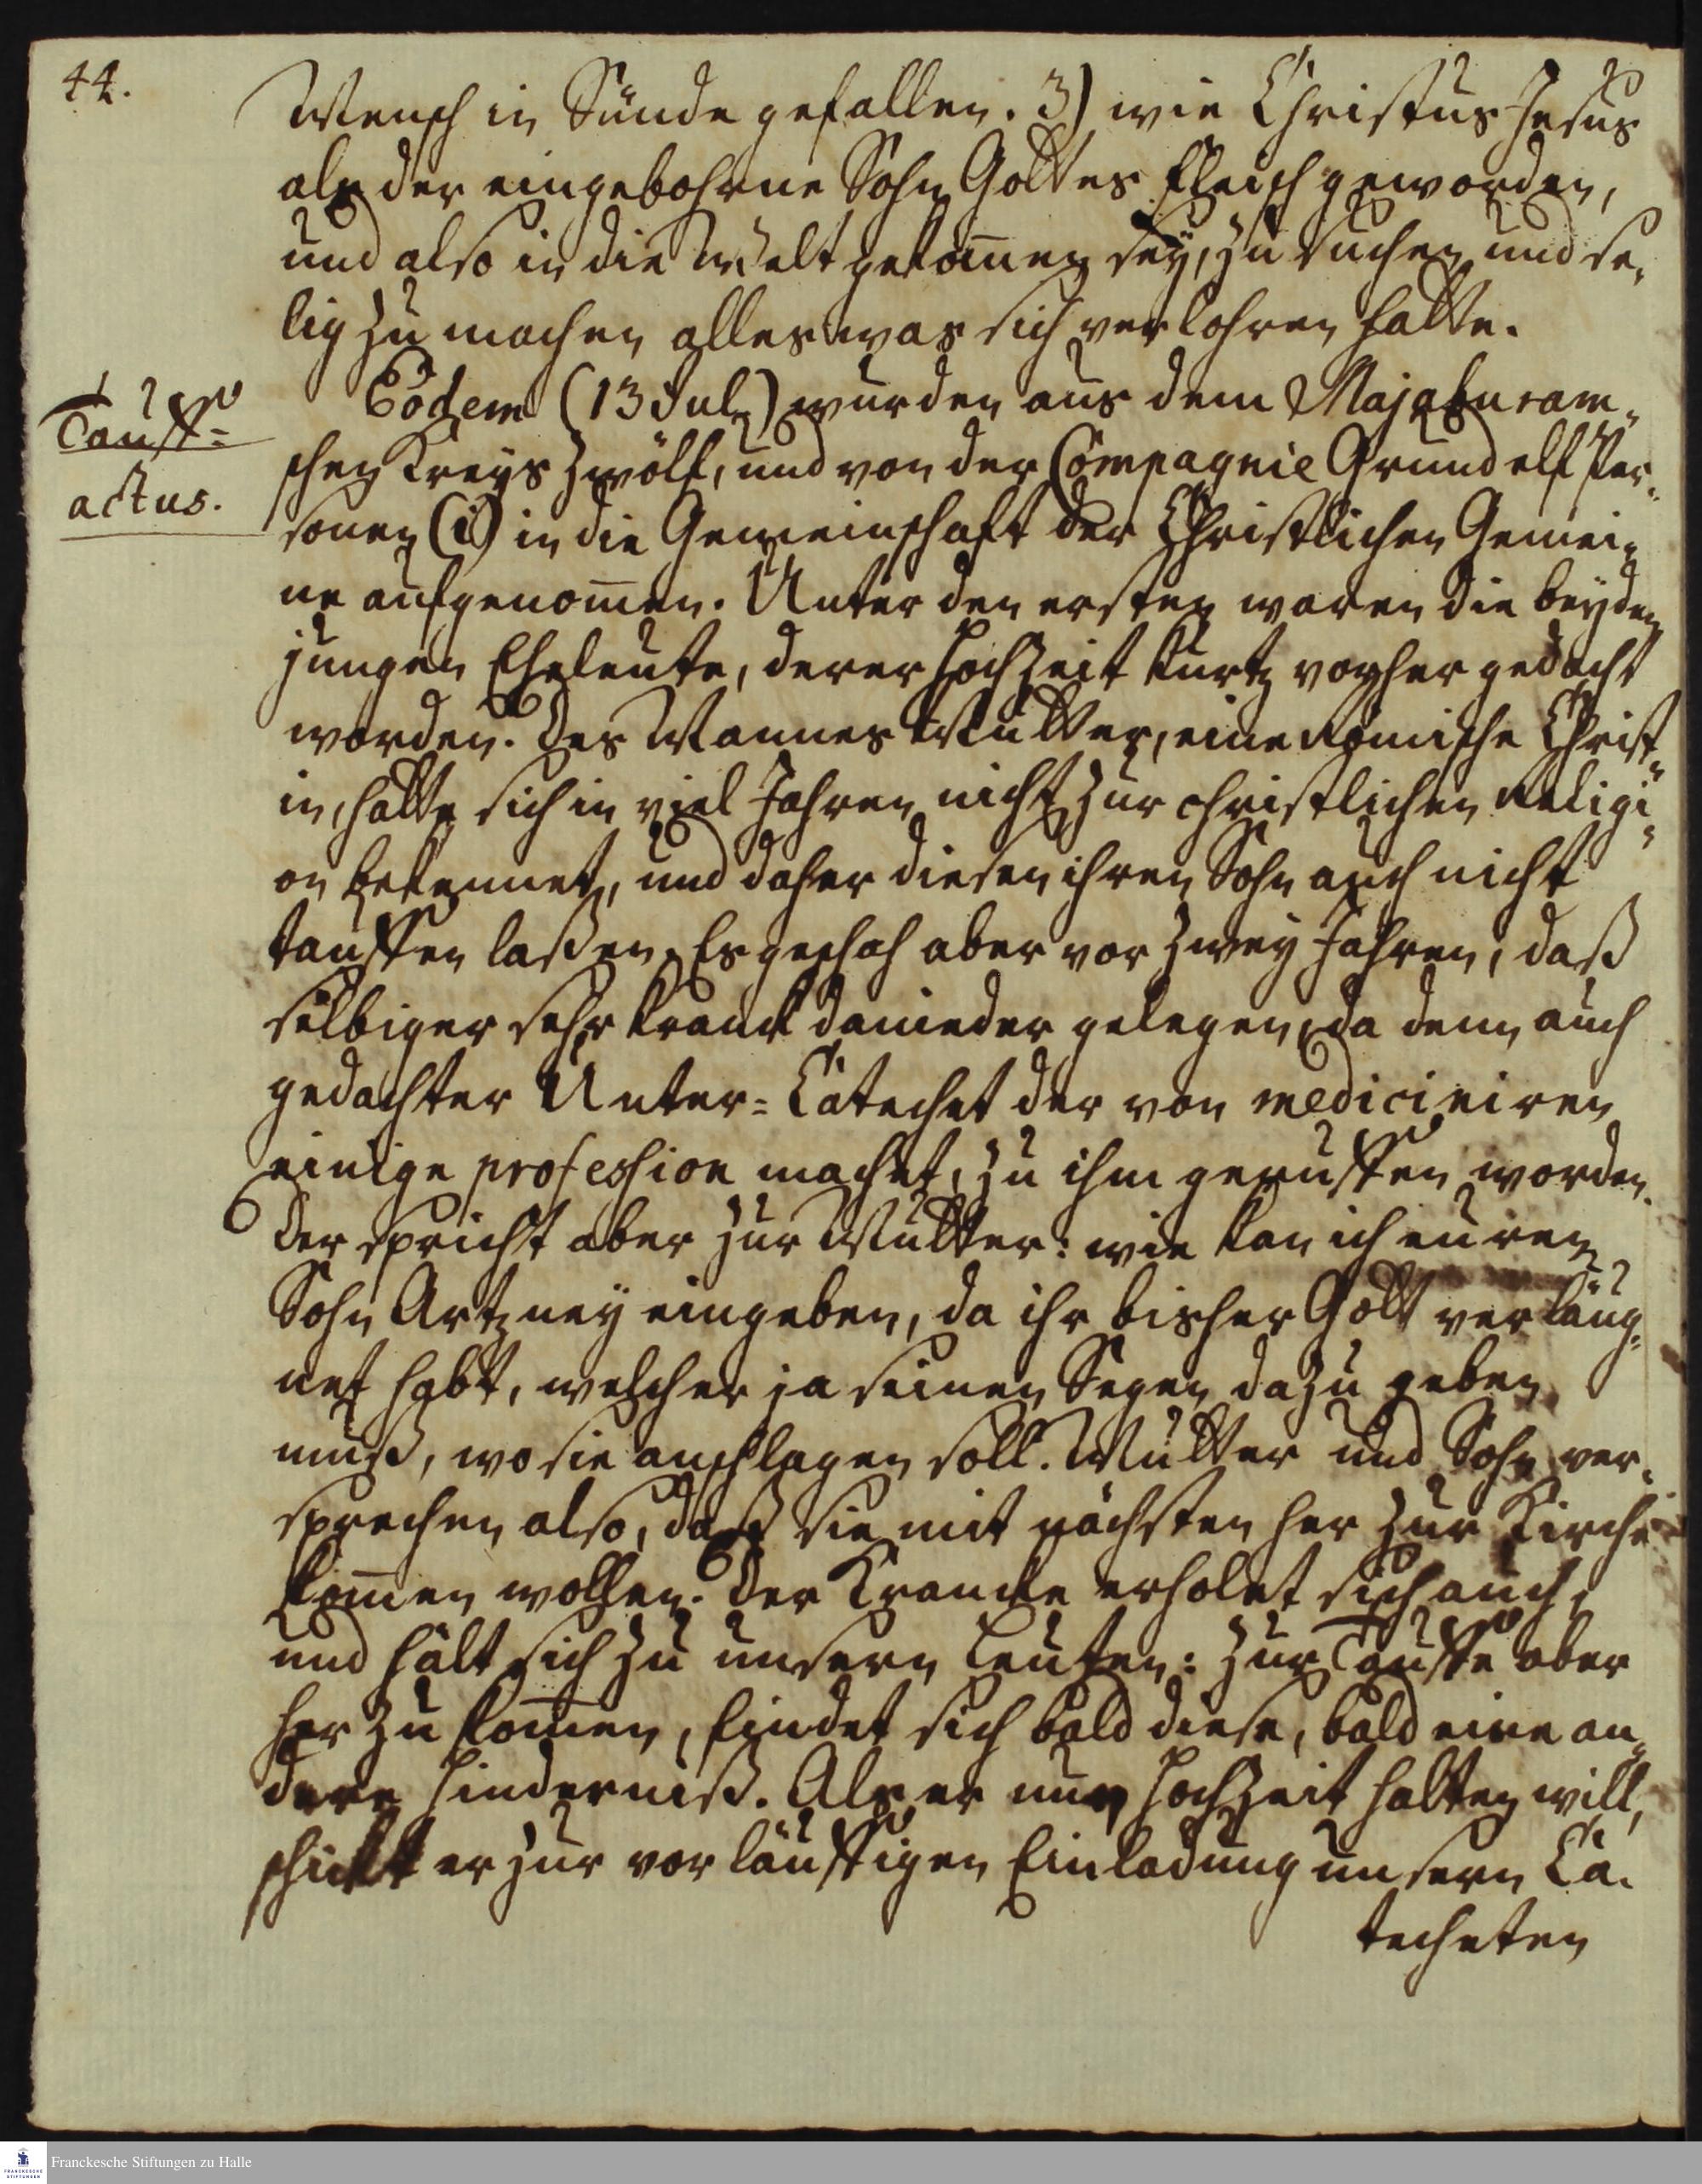 44.
Mensch in Sünde gefallen. 3) wie Christus Jesus
als der eingebohrne Sohn Gottes Fleisch geworden,
und also in die Welt gekom̅en sey, zu suchen und se-
lig zu machen alles was sich verlohren hatte.
Tauff=
actus.
Eodem (13 Jul.) wurden aus dem Majaburam-
schen Kreys zwölf, und von der Compagnie Grund elf Per-
sonen (i) in die Gemeinschaft der Christlichen Gemei-
ne aufgenom̅en. Unter den ersten waren die beyden
jungen Eheleute, derer Hochzeit kurtz vorher gedacht
worden. Des Mannes Mutter, eine Römische Christ-
in, hatte sich in viel Jahren nicht zur christlichen Religi-
on bekennet, und daher diesen ihren Sohn auch nicht
tauffen laßen. Es geschah aber vor zwey Jahren, daß
selbiger sehr kranck danieder gelegen, da denn auch
gedachter Unter=Catechet der von mediciniren
einige profession machet, zu ihm geruffen worden.
Der spricht aber zur Mutter: wie kan ich euren
Sohn Artzney eingeben, da ihr bisher Gott verläug-
net habt, welcher ja seinen Segen dazu geben
muß, wo sie anschlagen soll. Mutter und Sohn ver-
sprechen also, daß sie mit nächsten her zur Kirche
kom̅en wollen. Der Krancke erholet sich auch,
und hält sich zu unsern Leuten: zur Tauffe aber
her zu kom̅en, findet sich bald diese, bald eine an-
dere Hinderniß. Als er nun Hochzeit halten will,
schickt er zur vorläuffigen Einladung unsern Ca-
techeten
Franckesche Stiftungen zu Halle